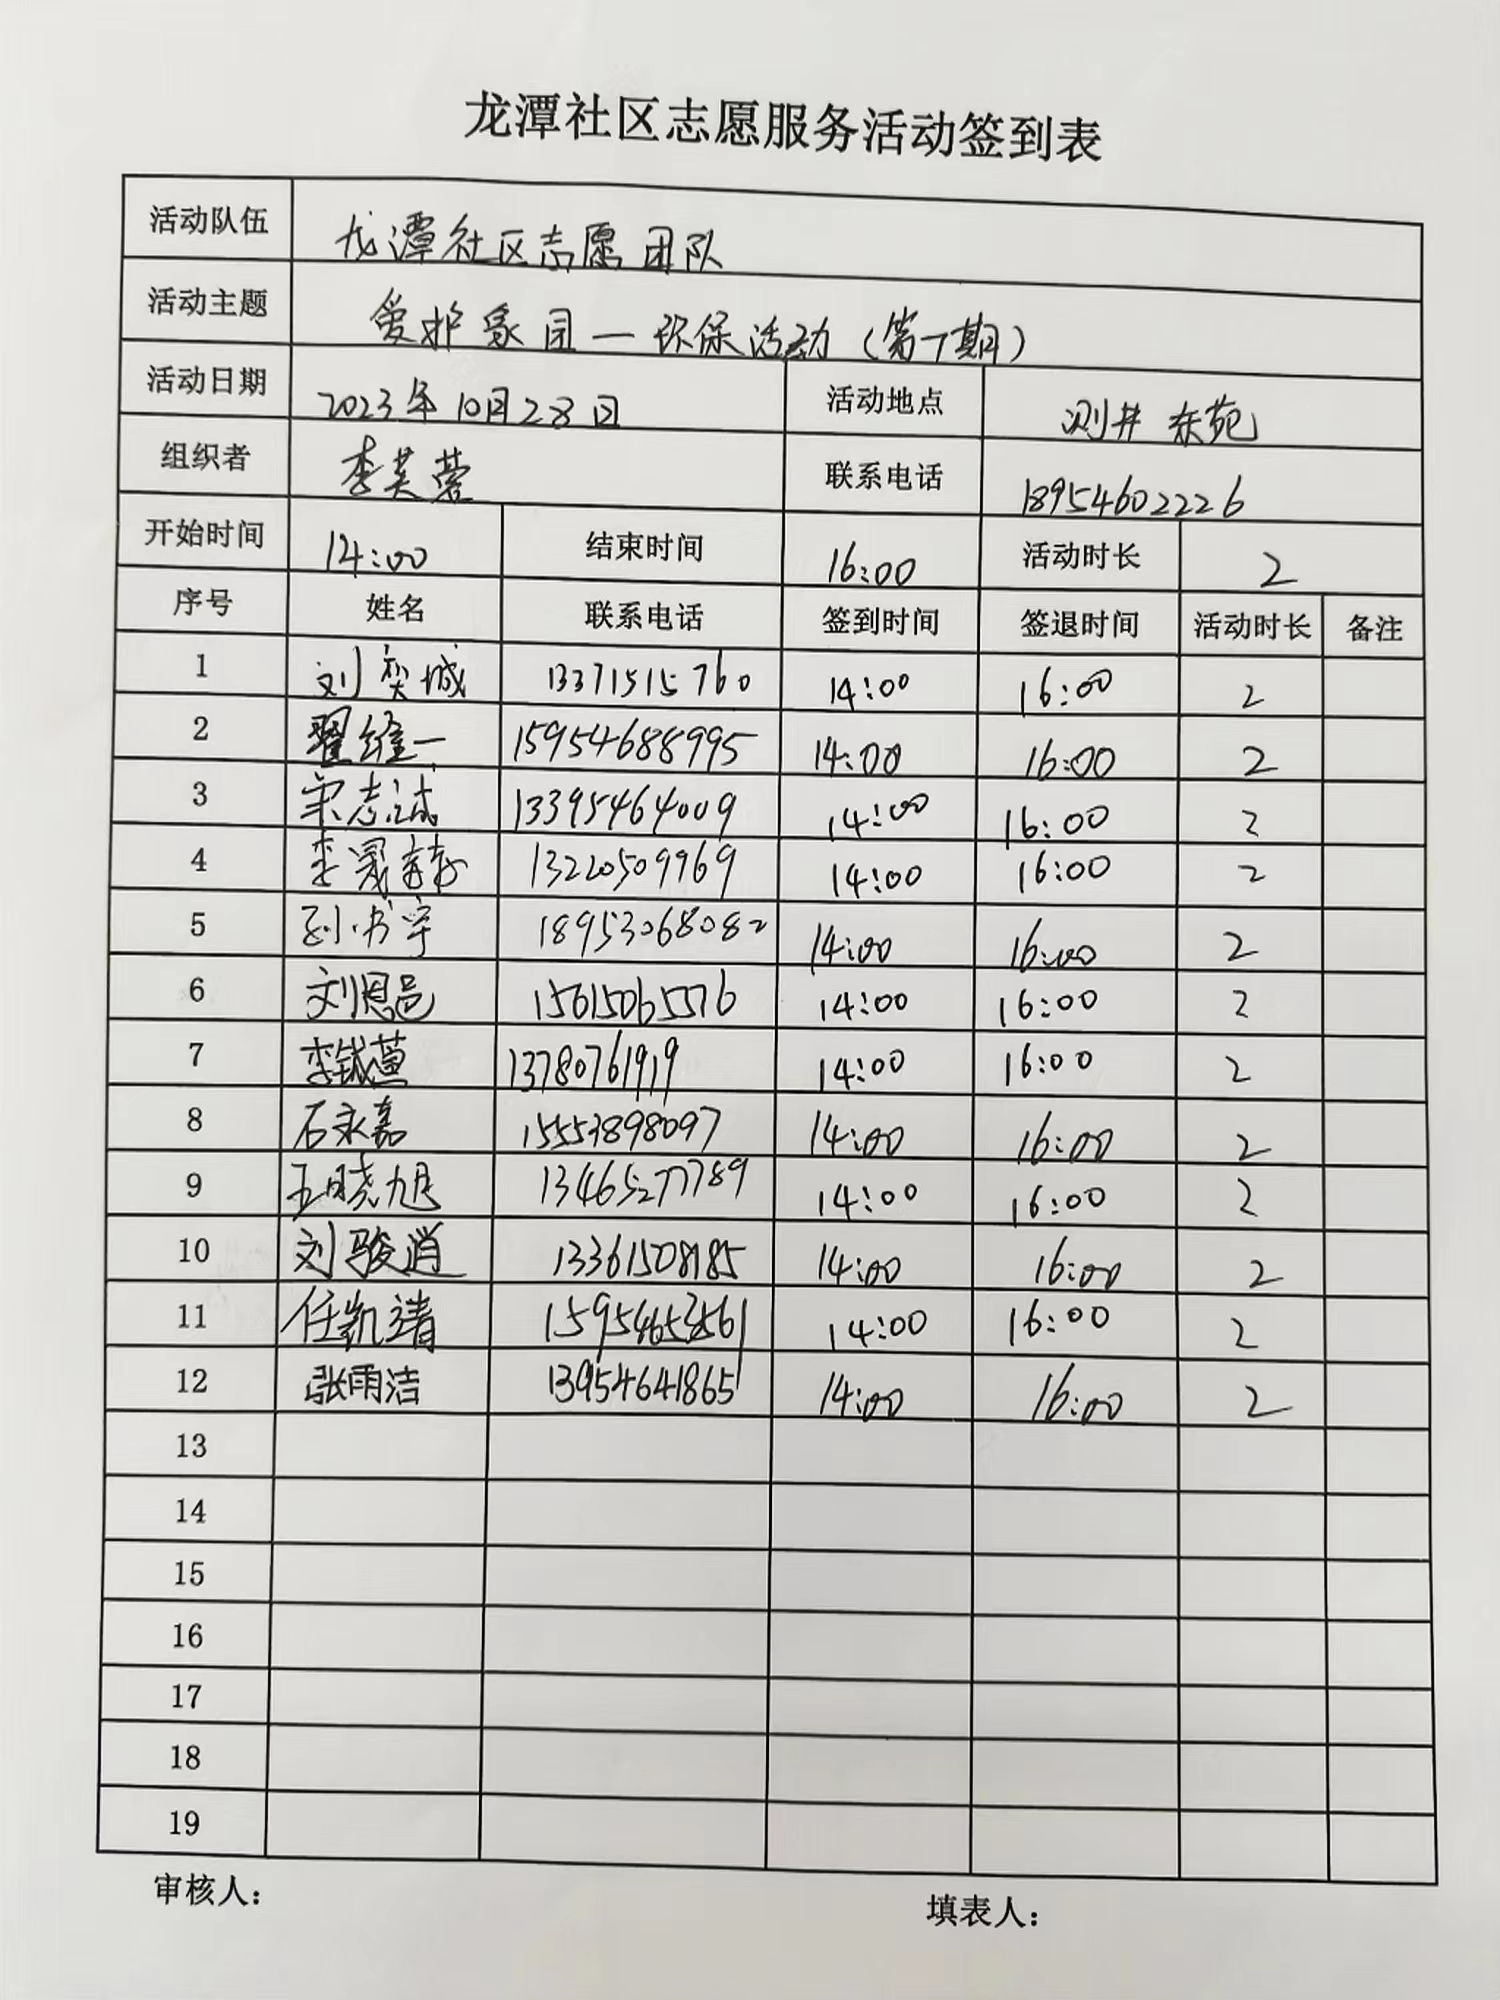 龙潭社区志愿服务活动签到表
活动队伍 龙潭社区志愿团队
活动主题 爱护家园一环保活动(第十期)
活动日期 2023年10月28日 活动地点 测井东苑
组织者 李芙蓉 联系电话 18954602226
开始时间 14:00 结束时间 16:00 活动时长 2
序号 姓名 联系电话 签到时间 签退时间 活动时长 备注
1 刘奕城 13371515760 14:00 16:00 2
2 翟维一 15954688995 14:00 16:00 2
3 宋志诚 13395464009 14:00 16:00 2
4 李晟 13220509969 14:00 16:00 2
5 孙书宇 18953068082 14:00 16:00 2
6 刘恩邑 15615065576 14:00 16:00 2
7 李钺萱 13780761919 14:00 16:00 2
8 石永嘉 15553898097 14:00 16:00 2
9 王晓旭 13465277789 14:00 16:00 2
10 刘骏逍 13361508185 14:00 16:00 2
11 任凯靖 14:00 16:00 2
12 张雨洁 13954641865 14:00 16:00 2
13
14
15
16
17
18
19
审核人: 填表人: